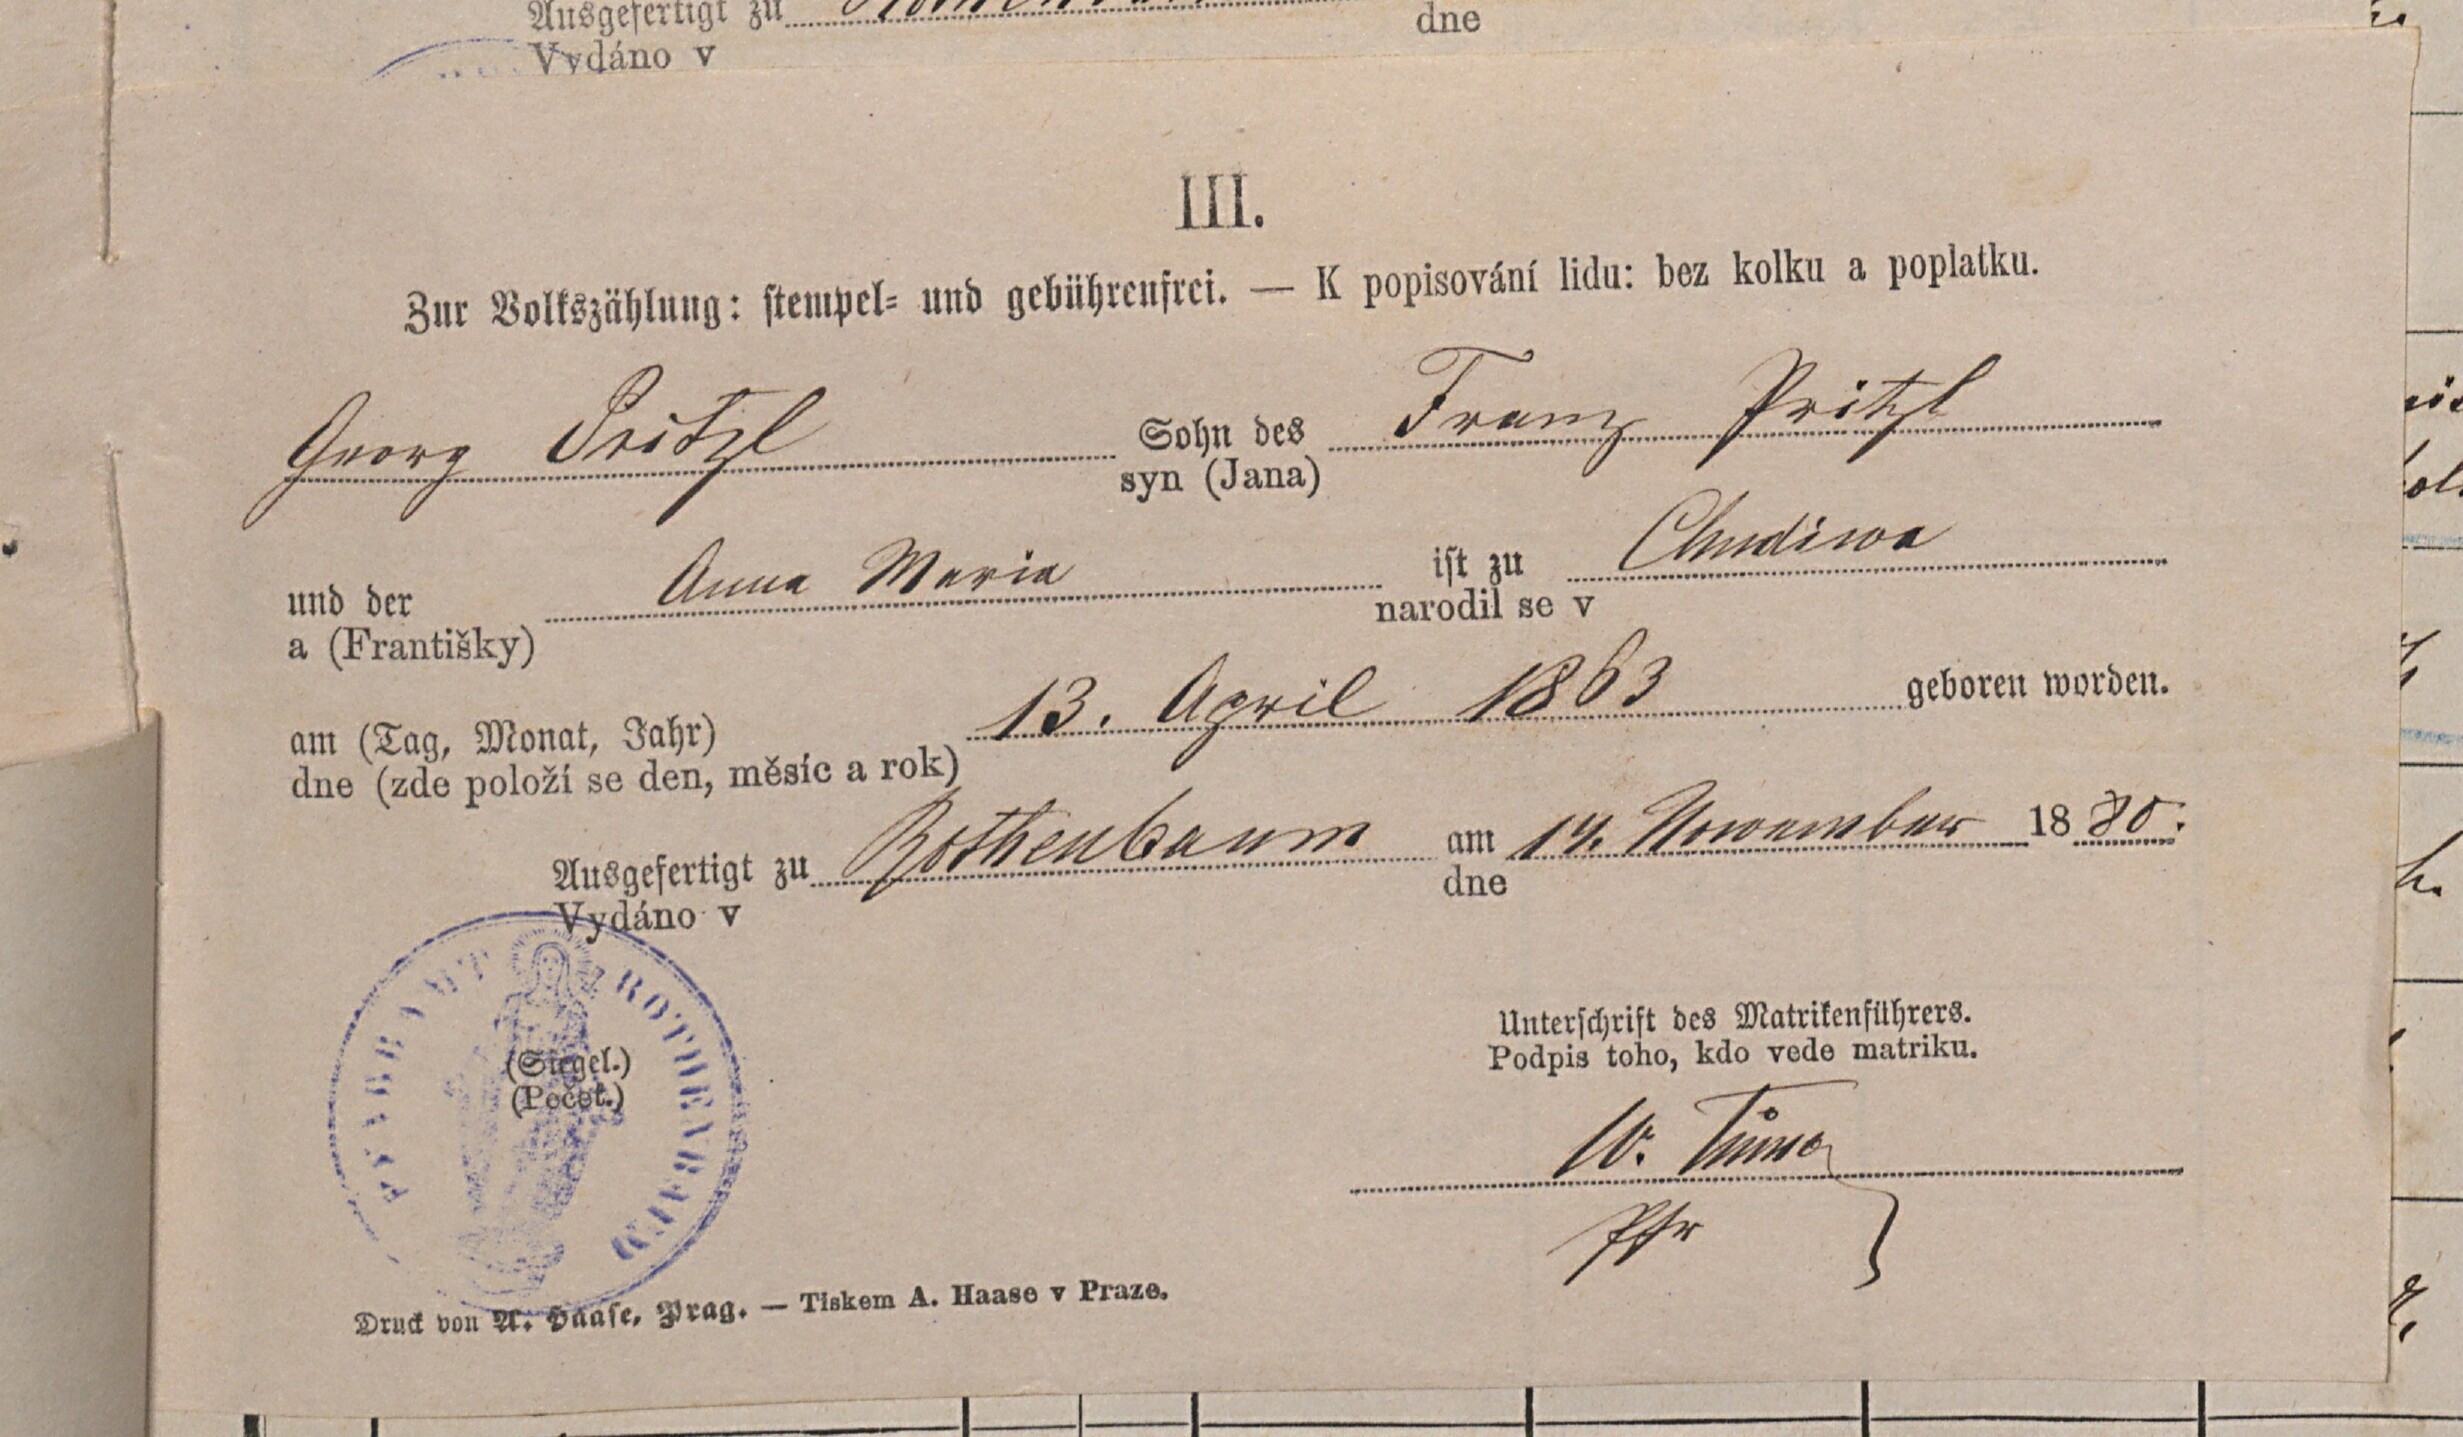 Ausgefertigt zu
dne
Vydáno v
III.
Zur Volkszählung: stempel- und gebührenfrei. — K popisování lidu: bez kolku a poplatku.
Georg Pritzl Sohn des Franz Pritzl
syn (Jana)
und der Anna Maria ist zu Chudiwa
a (Františky) narodil se v
am (Tag, Monat, Jahr) 13. April 1863 geboren worden.
dne (zde položí se den, měsíc a rok)
Ausgefertigt zu Rothenbaum am 14. November 1880.
Vydáno v dne
PFARRAMT ROTHENBAUM
(Siegel.)
(Pečeť.)
Unterschrift des Matrikenführers.
Podpis toho, kdo vede matriku.
W. Tůma
Pfr
Druck von A. Haase, Prag. — Tiskem A. Haase v Praze.